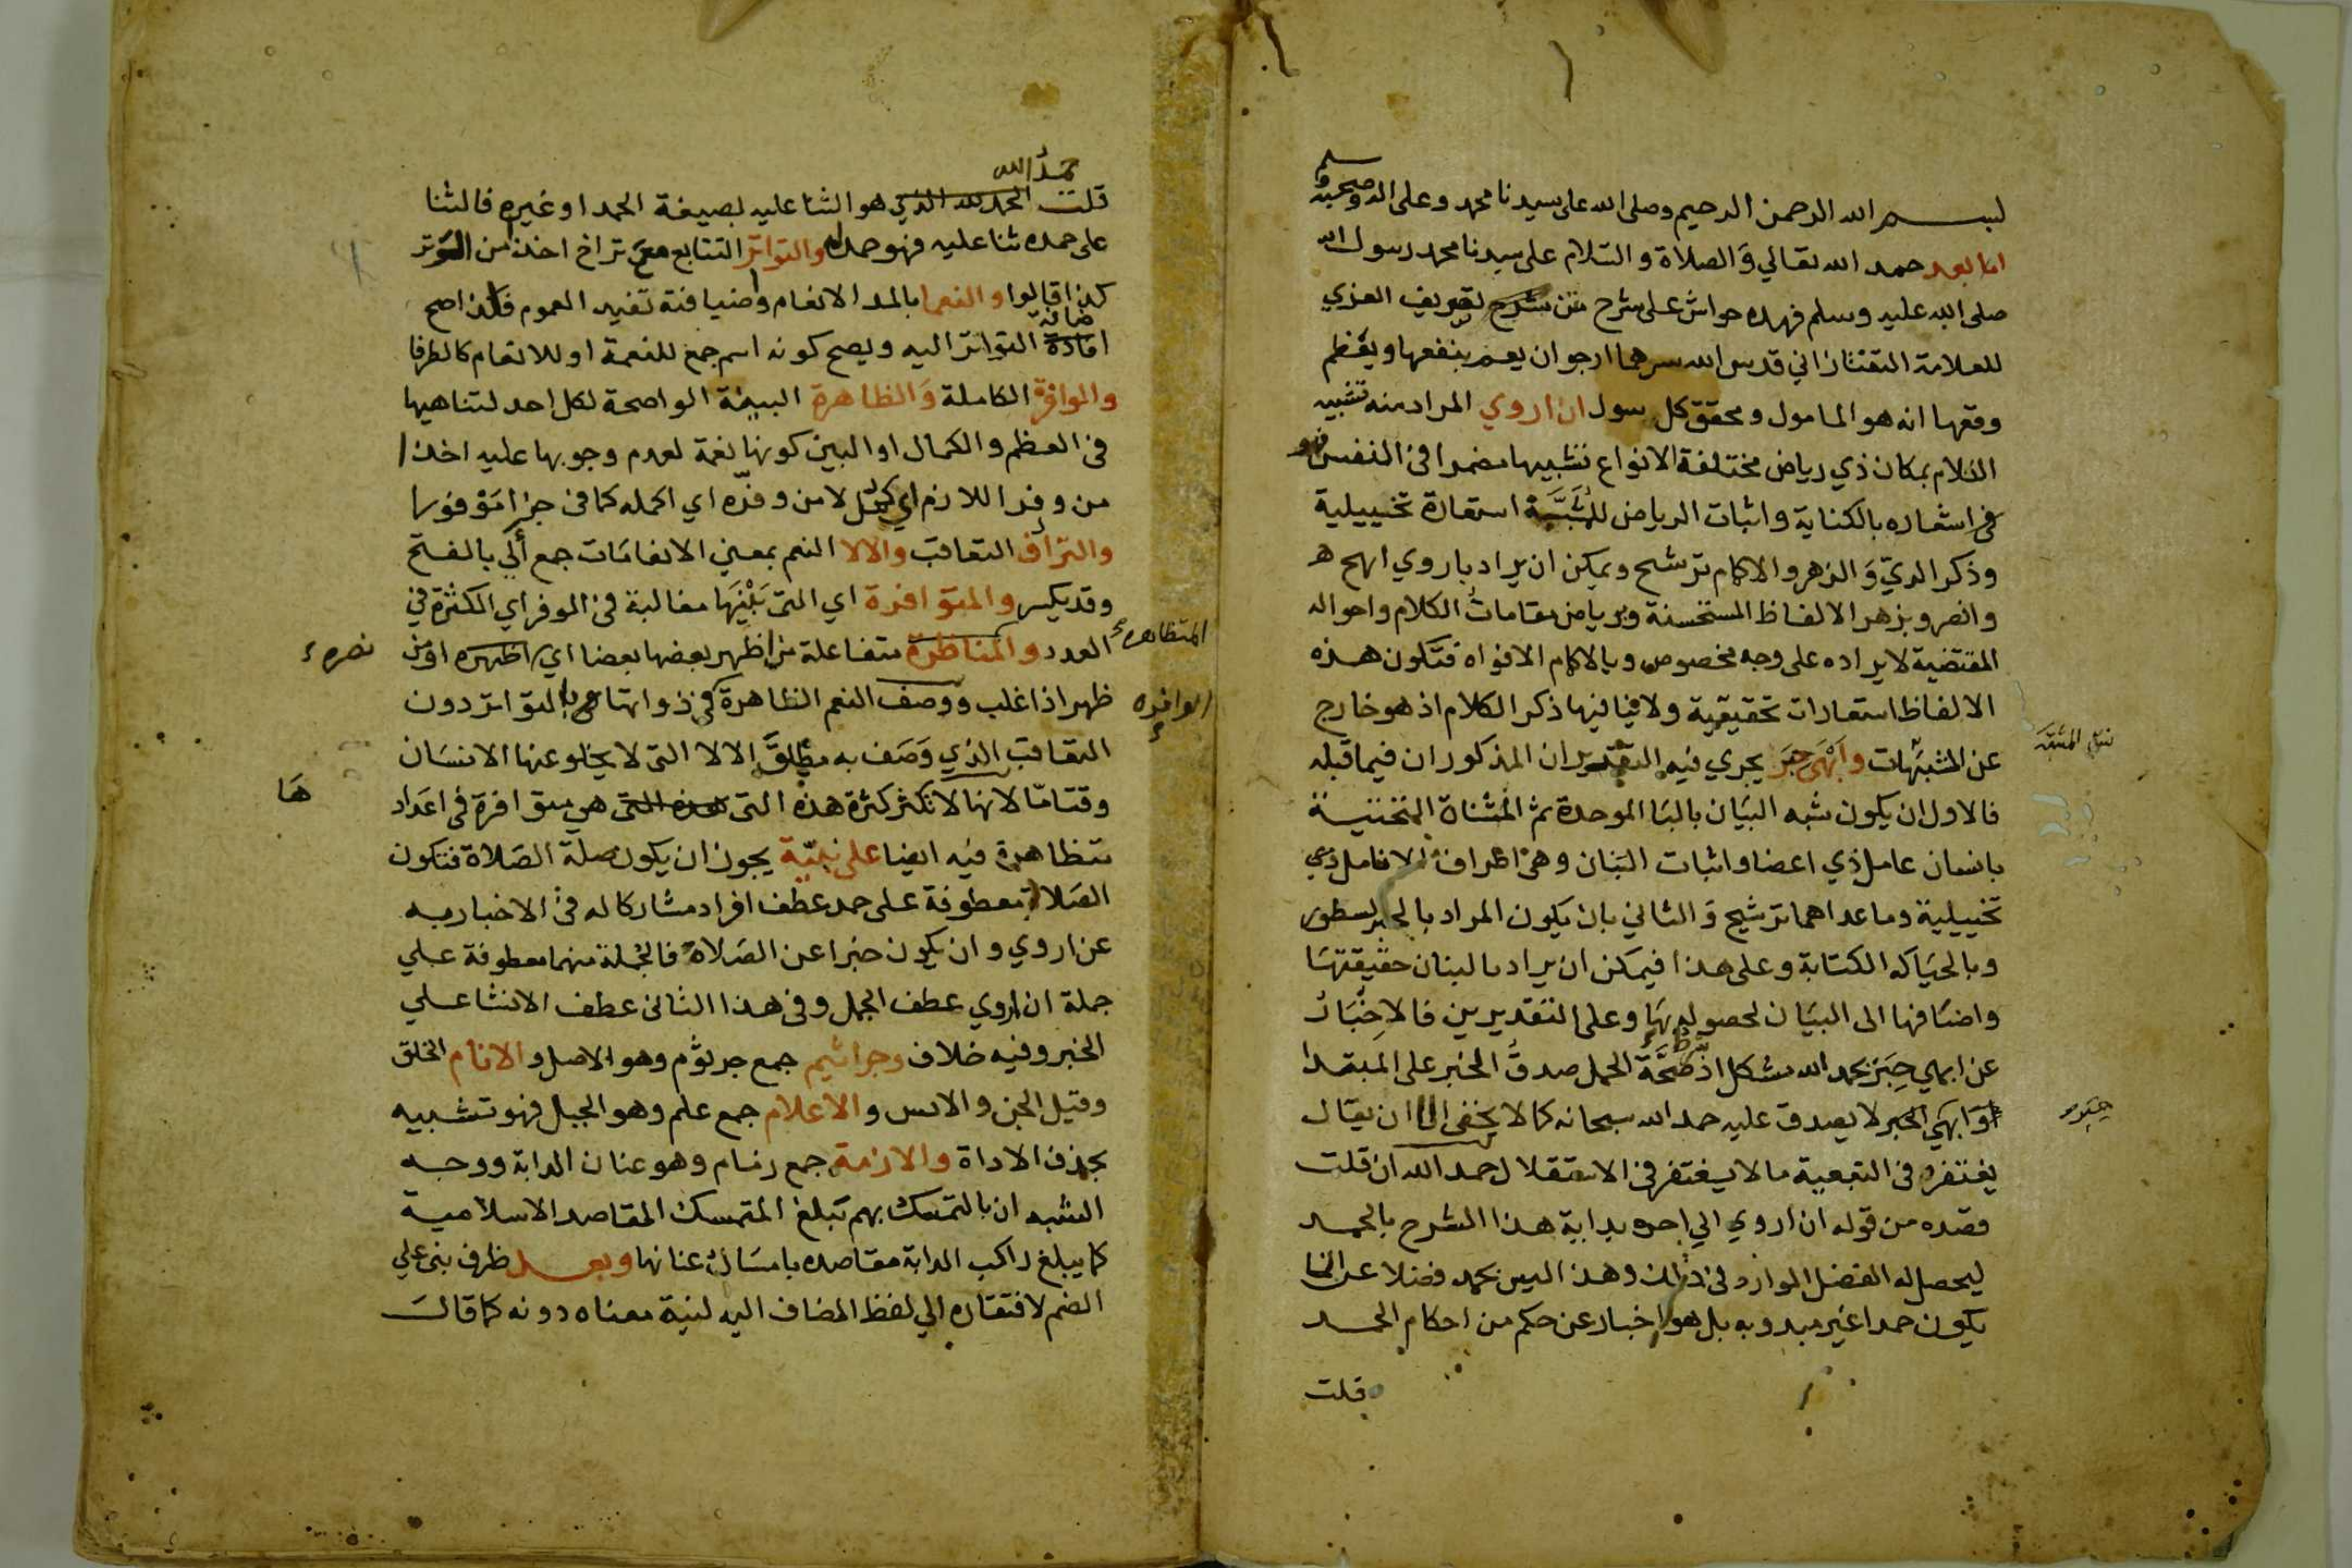 بسم الله الرحمن الرحيم وصلى الله على سيدنا محمد وعلى اله وصحبه وسلم
اما بعد حمد الله تعالي والصلاة والسلام على سيدنا محمد رسول الله
صلى الله عليه وسلم فهذه حواش على شرح تصريف العزي
للعلامة التفتازاني قدس الله سرهما ارجو ان يعم بنفعها ويعظم
وقعها انه هو المامول ومحقق كل سول ان اروي المراد منه تشبيه
الكلام بمكان ذي رياض مختلفة الانواع تشبيها مضمرا في النفس فهو
في اشعاره بالكناية واثبات الرياض للمشبه استعارة تخييلية
وذكر الري والزهر والاكمام ترشيح ويمكن ان يراد باروي ابهج
وانضر وبزهر الالفاظ المستحسنة وبرياض مقامات الكلام واحواله
المقتضية لايراده على وجه مخصوص وبالاكمام الافواه فتكون هذه
الالفاظ استعارات تحقيقية ولا ينافيها ذكر الكلام اذ هو خارج
عن المشبهات وابهى حبر يجري فيه التقديران المذكوران فيما قبله
فالاول ان يكون شبه البيان بالبا الموحدة ثم المثناة التحتية
بانسان عامل ذي اعضا واثبات البنان وهي اطراف الانامل
تخييلية وما عداهما ترشيح والثاني بان يكون المراد بالحبر
وبالحياكه الكتابة وعلى هذا فيمكن ان يراد بالبنان حقيقتها
واضافها الى البيان لحصوله بها وعلى التقديرين فالاخبار
عن ابهي حبر بحمد الله مشكل اذ شرط صحة الحمل صدق الخبر على المبتدا
وابهي الحبر لا يصدق عليه حمد الله سبحانه كما لا يخفى الا ان يقال
يغتفر في التبعية ما لا يغتفر في الاستقلال حمد الله ان قلت
قصده من قوله ان اروي الي اخره بداية هذا الشرح بالحمد
ليحصل له الفضل الوارد في ذلك وهذا ليس بحمد فضلا عن
يكون حمدا غير مبدو به بل هو اخبار عن حكم من احكام الحمد
قلت
حمد الله
قلت هو الثنا عليه بصيغة الحمد او غيره فالثنا
على حمده ثنا عليه فهو حمد له والتواتر التتابع مع تراخ اخذا من التوتر
كذا قالوا والنعما بالمد الانعام واضافته تفيد العموم فلذا صح
اضافة التواتر اليه ويصح كونه اسم جمع للنعمة او للانعام كالطرفا
والوافرة الكاملة والظاهرة البينة الواضحة لكل احد لتناهيها
في العظم والكمال او البين كونها نعمة لعدم وجوبها عليه اخذا
من وفر اللازم اي كمل لا من وفره اي اكمله كما في جزا موفورا
والترادف التعاقب والالا النعم بمعنى الانعامات جمع ألى بالفتح
وقد يكسر والمتوافرة اي التي بينها مغالبة في الوفر اي الكثرة في
العدد والمتظاهرة متفاعلة من اظهر بعضها بعضا اي اظهره او من
ظهر اذا غلب ووصف النعم الظاهرة في ذواتها بالتواتر دون
التعاقب الذي وصف به مطلق الالا التي لا يخلو عنها الانسان
وقتا ما لانها لا تكثر كثرة هذه التي هي متوافرة في اعداد
متظاهرة فيه ايضا على نبيه يجوز ان يكون صلة الصلاة فتكون
الصلاة معطوفة على حمد عطف افراد مشاركا له في الاخبار به
عن اروي وان يكون خبرا عن الصلاة فالجملة منهما معطوفة علي
جملة ان اروي عطف الجمل وفي هذا الثاني عطف الانشا علي
الخبر وفيه خلاف وجراثيم جمع جرثوم وهو الاصل والانام الخلق
وقيل الجن والانس والاعلام جمع علم وهو الجبل فهو تشبيه
بحذف الاداة والازمة جمع زمام وهو عنان الدابة ووجه
الشبه ان بالتمسك بهم تبلغ المتمسك المقاصد الاسلامية
كما يبلغ راكب الدابة مقاصده بامساك عنانها وبعد ظرف بني علي
الضم لافتقاره الي لفظ المضاف اليه لنية معناه دونه كما قال